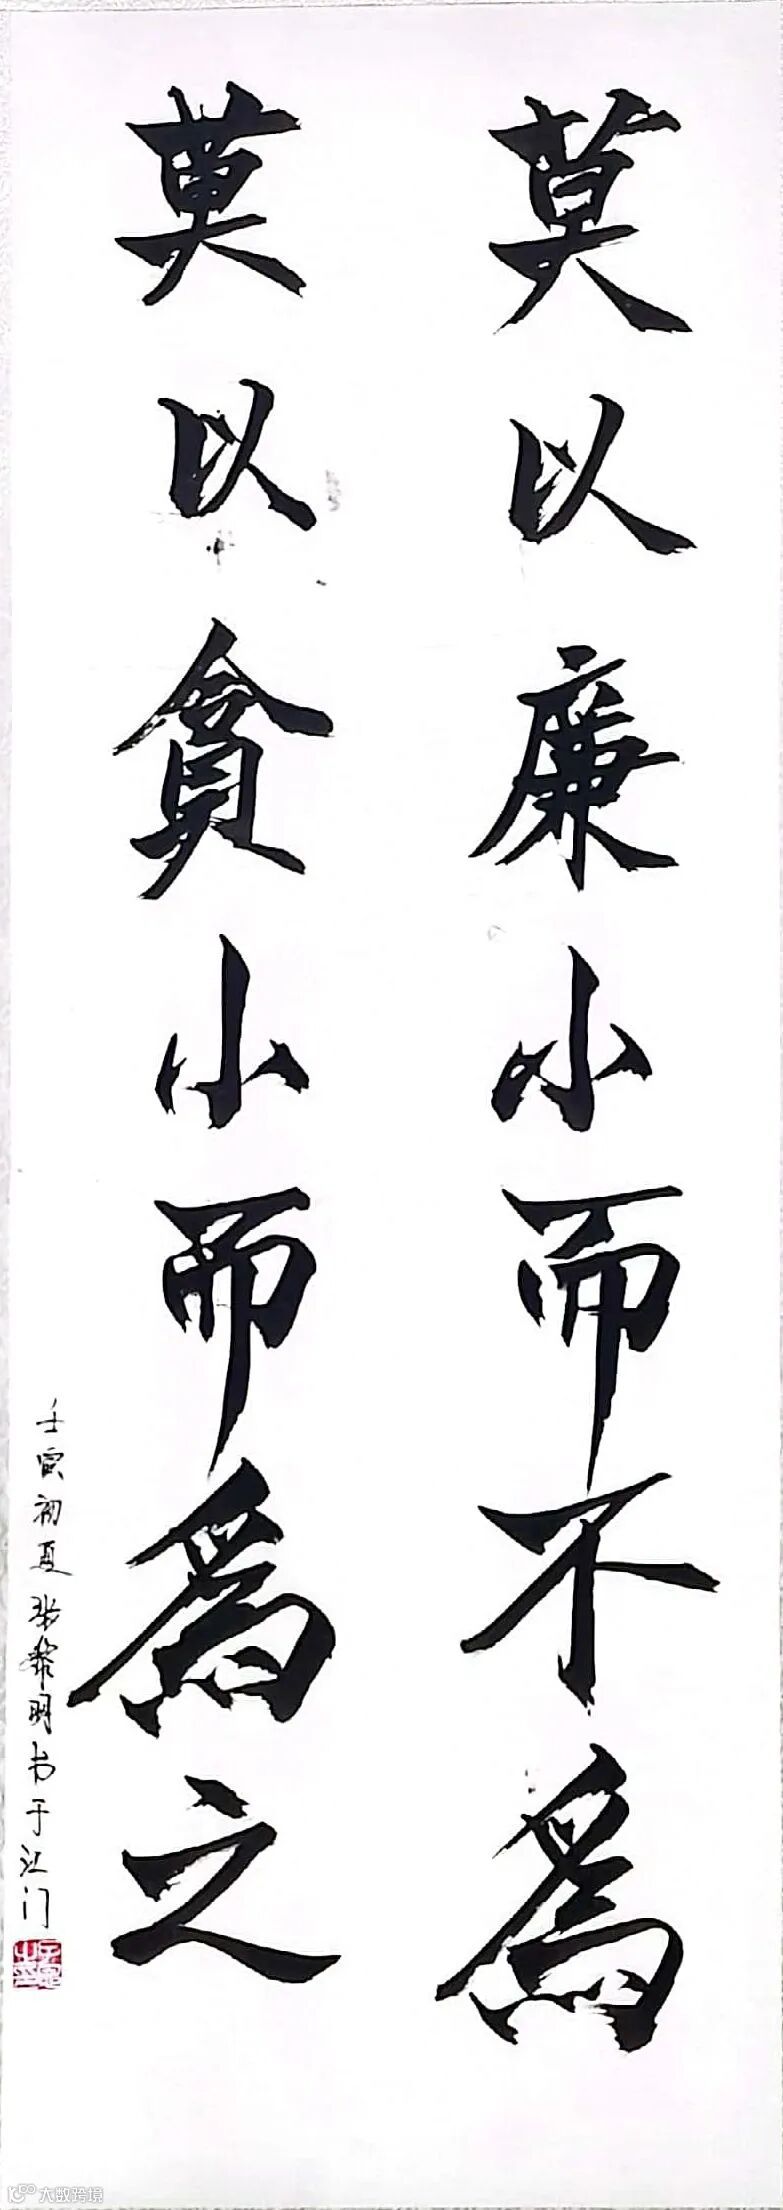 莫以廉小而不為
莫以貪小而為之
壬寅初夏张黎明书于江门
大数跨境